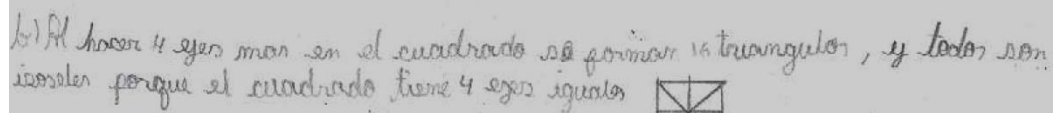 b) Al hacer 4 ejes mas en el cuadrado se forman 16 triangulos, y todos son
isoseles porque el cuadrado tiene 4 ejes iguales